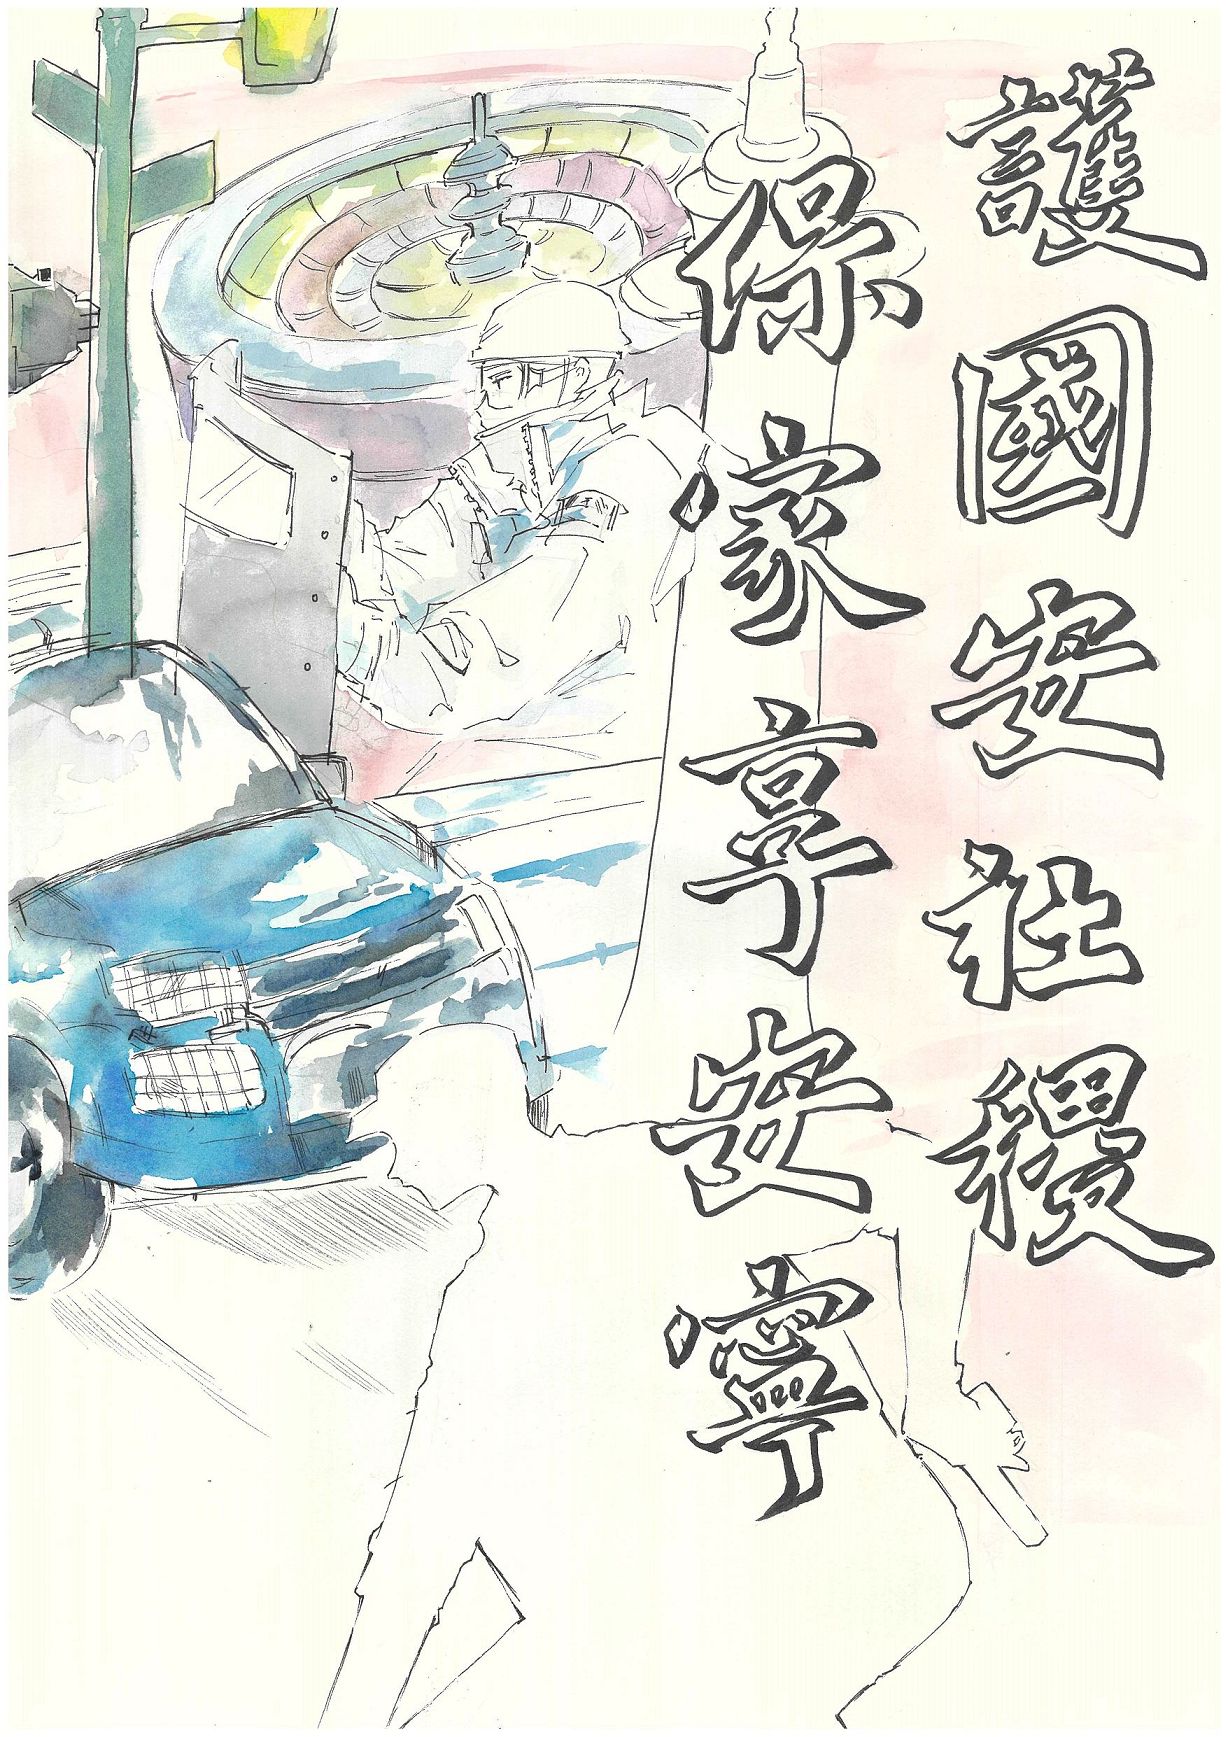 護國安社稷
保家享安寧